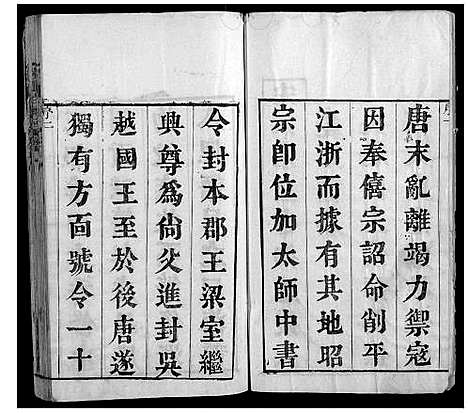 唐末亂離竭力禦寇
因奉僖宗詔命削平
江浙而據有其地昭
宗卽位加太師中書
令封本郡王梁室繼
興尊爲尙父進封吳
越國王至於後唐遂
獨有方面號令一十
序二